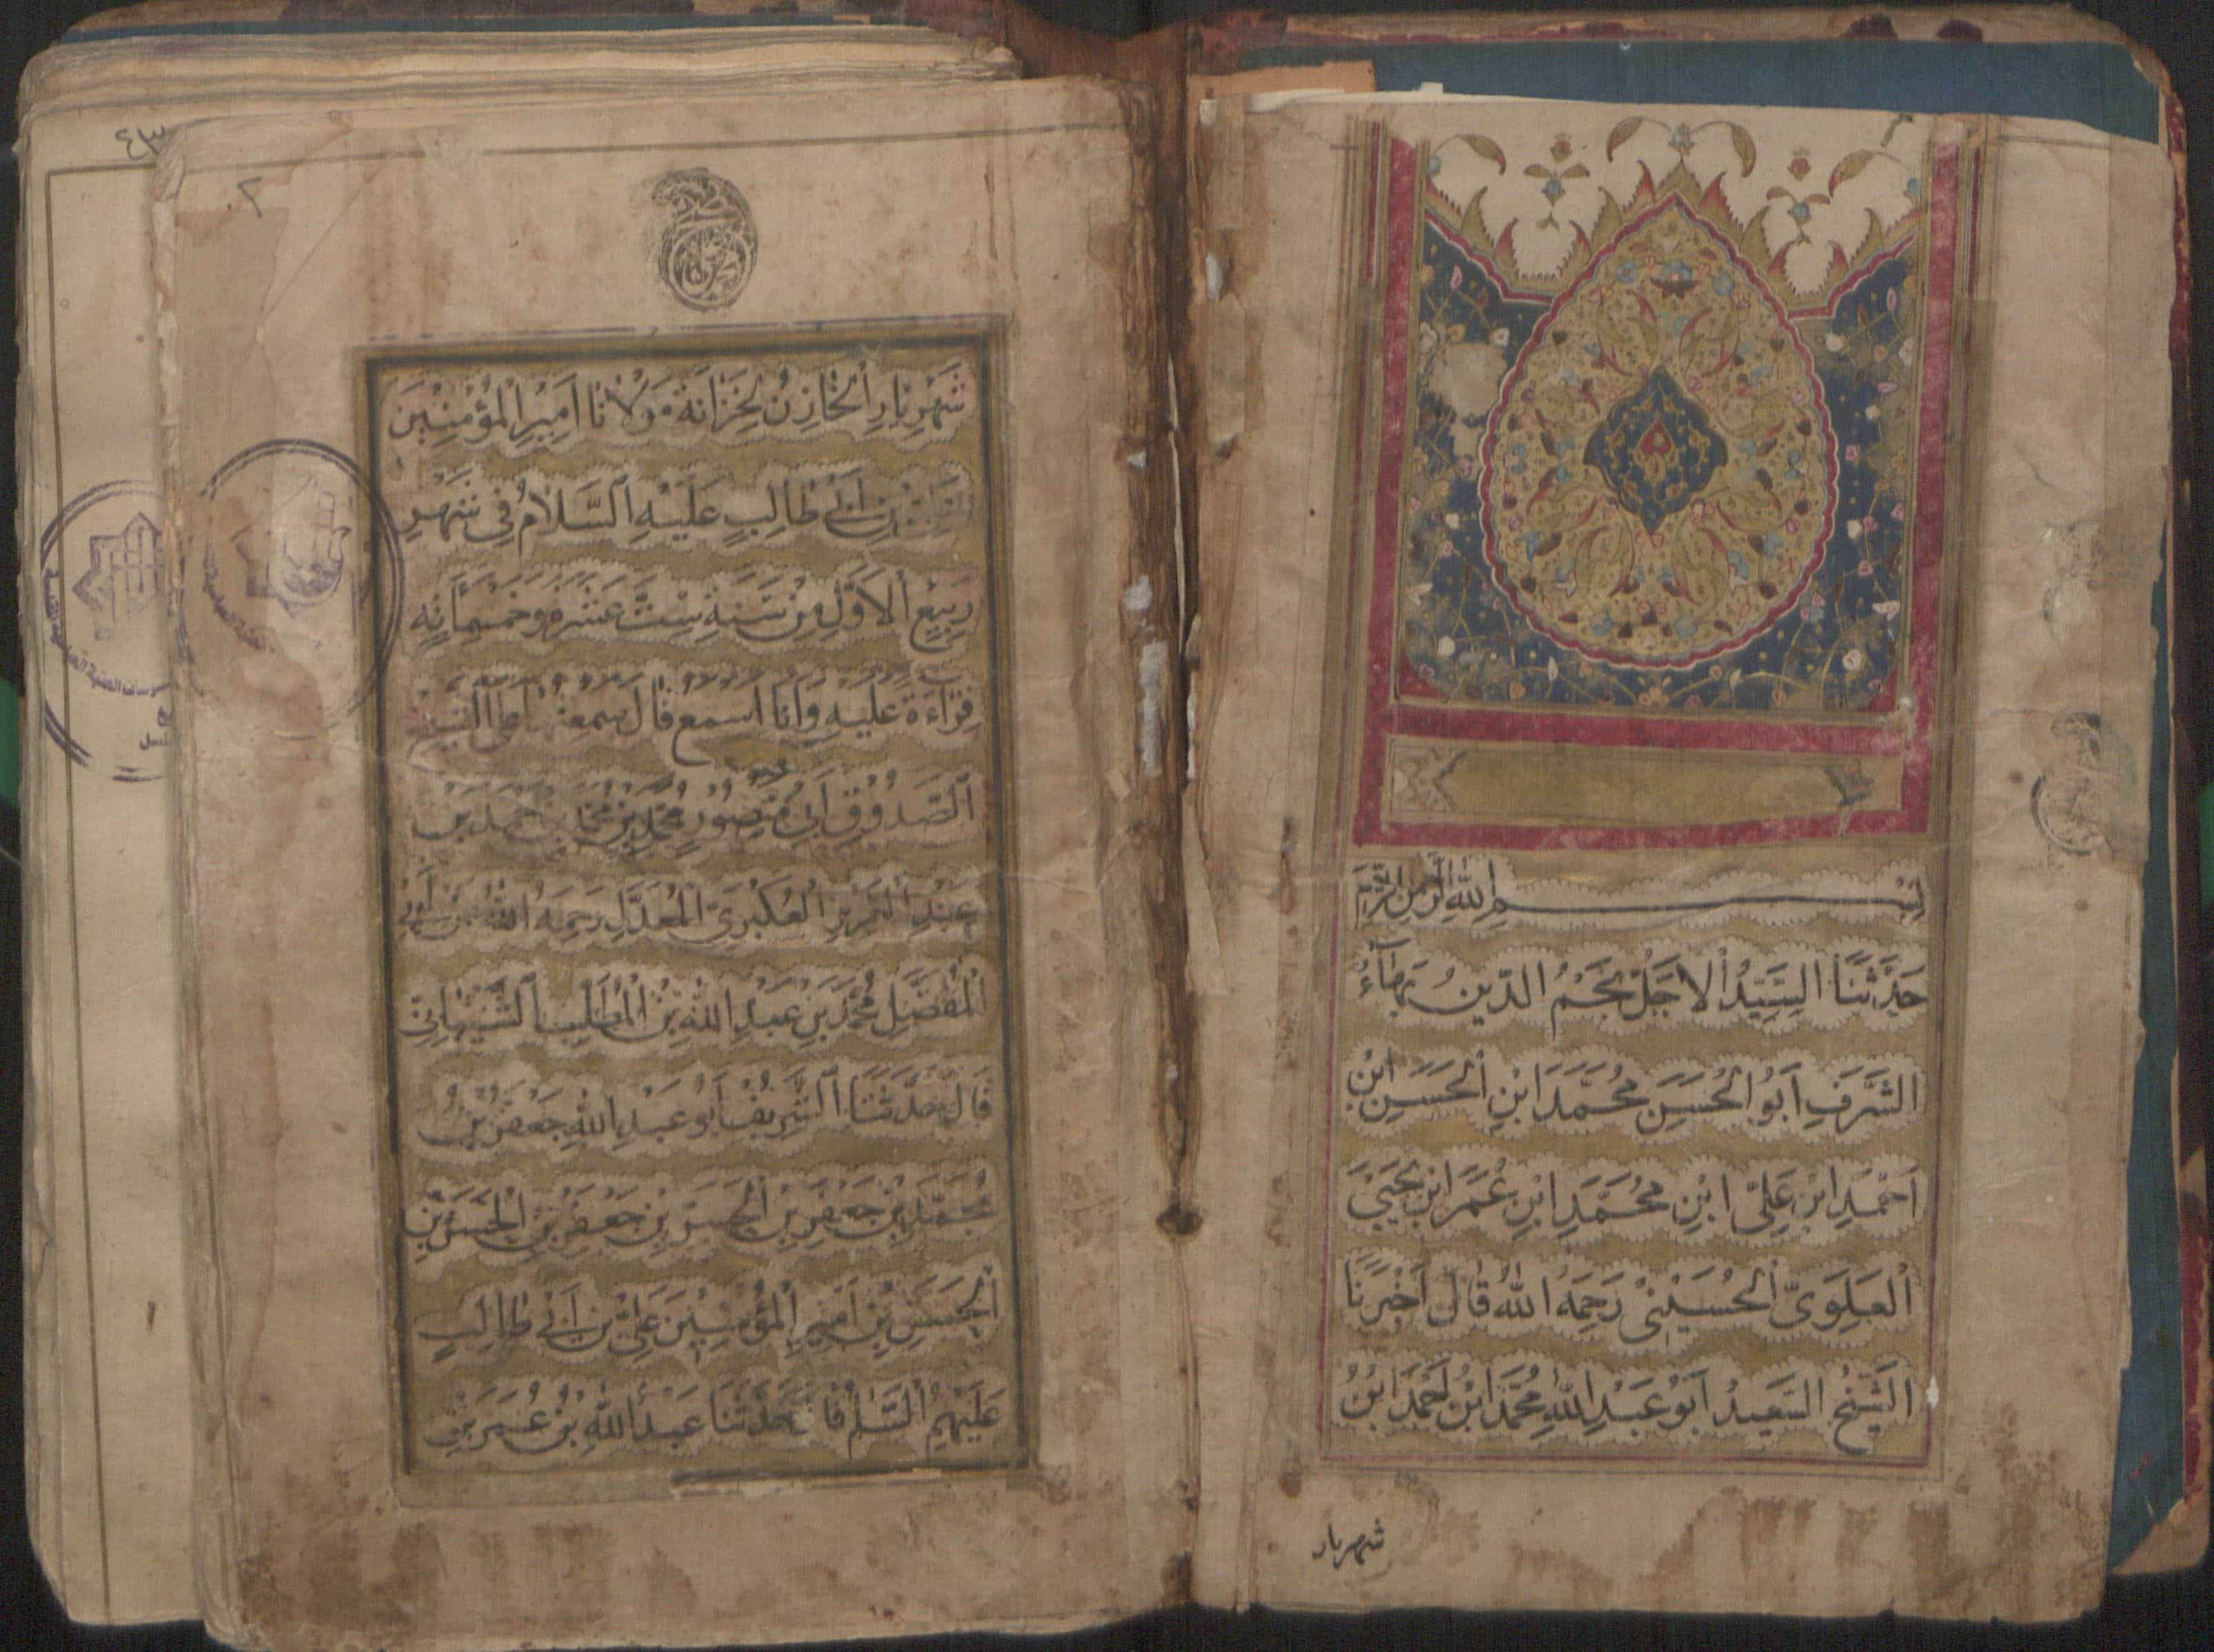 بِسْمِ اللهِ الرَّحْمنِ الرَّحِيمِ
حَدَّثَنَا السَّيِّدُ الاَجَلُّ نَجْمُ الدّينِ بَهاۤءُ
الشَّرَفِ اَبُو الْحَسَنِ مُحَمَّدَ ابْنِ الْحَسَنِ ابْنِ
اَحْمَدِ ابْنِ عَلِىِّ ابْنِ مُحَمَّدِ ابْنِ عُمَرَ ابْنِ يَحْيَىَ
الْعَلَوِىّ الْحُسَيْنِىْ رَحِمَهُ اللهُ قٰالَ اَخْبَرَنَا
الشَّيْخُ السَّعِيدُ اَبُو عَبْدِ اللهِ مُحَمَّدَ ابْنُ اَحْمَدَ ابْنُ
شهريار
٢
شَهْرِيٰارِ الْخٰازِنُ لِخَزٰانَةِ مَوْلاٰنٰا اَمِيْرِ الْمُؤْمِنِيْنَ
بْنِ اَبِي طٰالِبٍ عَلَيْهِ السَّلاٰمُ فِي شَهْرِ
رَبِيْعِ الْاَوَّلِ مِنْ سَنَةِ سِتَّ عَشَرَةَ وَخَمْسَمِائَةِ
قِرٰاءَةً عَلَيْهِ وَاَنَا اَسْمَعُ قٰالَ سَمِعْتُهٰا عَلَى الشَّيْخِ
الصَّدُوْقِ اَبِي مَنْصُوْرٍ مُحَمَّدِ بْنِ مُحَمَّدِ بْنِ اَحْمَدَ بْنِ
عَبْدِ الْعَزِيْزِ الْعُكْبَرِيِّ الْمُعَدَّلِ رَحِمَهُ اللهُ عَنْ اَبِي
الْمُفَضَّلِ مُحَمَّدِ بْنِ عَبْدِ اللهِ بْنِ الْمُطَّلِبِ الشَّيْبٰانِيِّ
قٰالَ حَدَّثَنَا الشَّرِيْفُ اَبُو عَبْدِ اللهِ جَعْفَرُ بْنُ
مُحَمَّدِ بْنِ جَعْفَرِ بْنِ الْحَسَنِ بْنِ جَعْفَرِ بْنِ الْحَسَنِ بْنِ
الْحَسَنِ بْنِ اَمِيْرِ الْمُؤْمِنِيْنَ عَلِيِّ بْنِ اَبِي طٰالِبٍ
عَلَيْهِمُ السَّلٰمُ قٰالَ حَدَّثَنَا عَبْدُ اللهِ بْنُ عُمَرَ بْنِ
٤٣